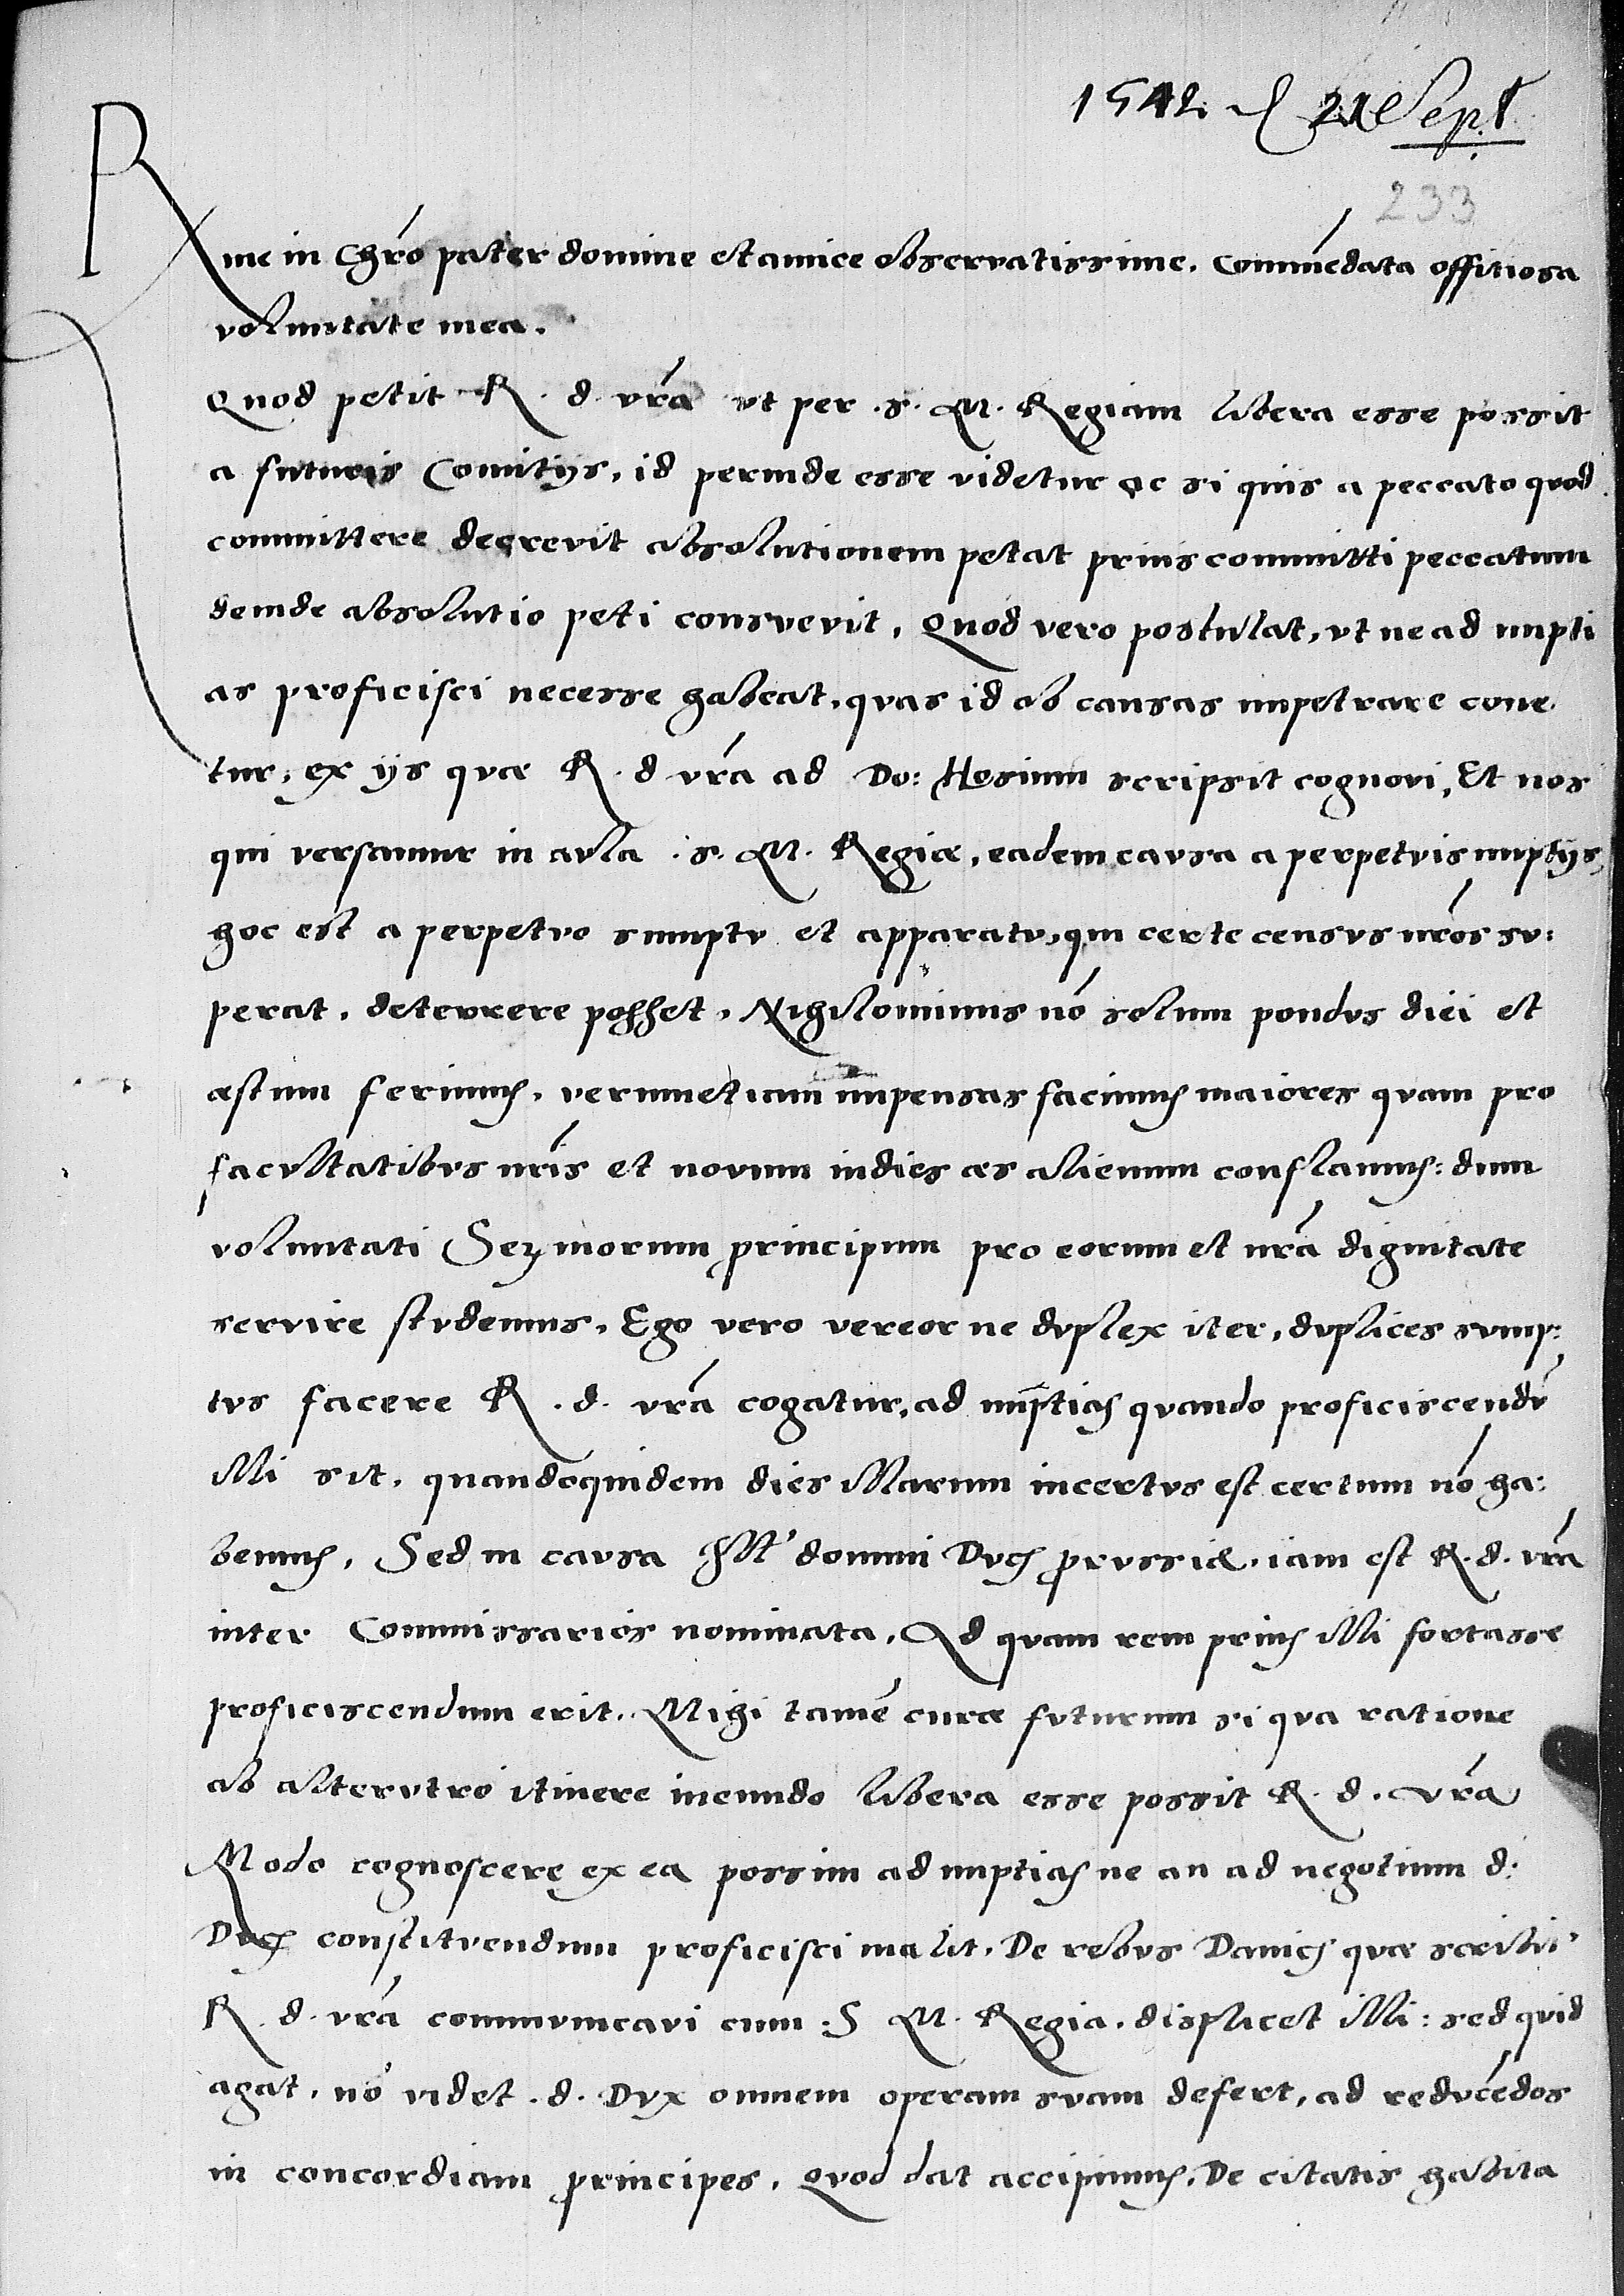 1542 d 21 Sept
233
Rme in Chro pater domine et amice observatissime. Commendata offitiosa
voluntate mea.
Quod petit R. d. vra ut per .s. M. Regiam libera esse possit
a futuris Comitijs, id perinde esse videtur ac si quis a peccato quod
committere decrevit absolutionem petat prius committi peccatum
deinde absolutio peti consvevit. Quod vero postulat, vt ne ad nupti
as proficisci necesse habeat, quas id ob causas impetrare cone
tur, ex ijs quae R. d vra ad Do: Hosium scripsit cognovi, Et nos
qui versamur in avla .s. M. Regiae, eadem cavsa a perpetvis nuptijs,
hoc est a perpetvo sumptv et apparatv, qui certe censvs nros sv:
perat, deterrere posset. Nihilominus nō solum pondvs diei et
aestum ferimus, verumetiam impensas facimus maiores quam pro
facvltatibvs nris et novum indies aes alienum conflamus: dum
voluntati Sermorum principum pro eorum et nra dignitate
servire stvdemus. Ego vero vereor ne dvplex iter, dvplices svmp:
tvs facere R. d. vra cogatur, ad nuptias qvando proficiscendū
illi sit, quandoquidem dies illarum incertvs est certum nō ha:
bemus. Sed in cavsa Illt domini Dvcis prvssiae, iam est R. d. vra
inter Commissarios nominata, Ad quam rem prius illi fortasse
proficiscendum erit. Mihi tamē curae fvturum si qva ratione
ab altervtro itinere ineundo libera esse possit R. d. vra
Modo cognoscere ex ea possim ad nuptias ne an ad negotium d.
Dvcis constitvendum proficisci malit. De rebvs Danicis qvae scribit
R. d. vra commvnicavi cum .S M. Regia, displicet illi: sed qvid
agat, nō videt .d. Dvx omnem operam svam defert, ad redvcēdos
in concordiam principes. Qvod dat accipimus. De citatis habita